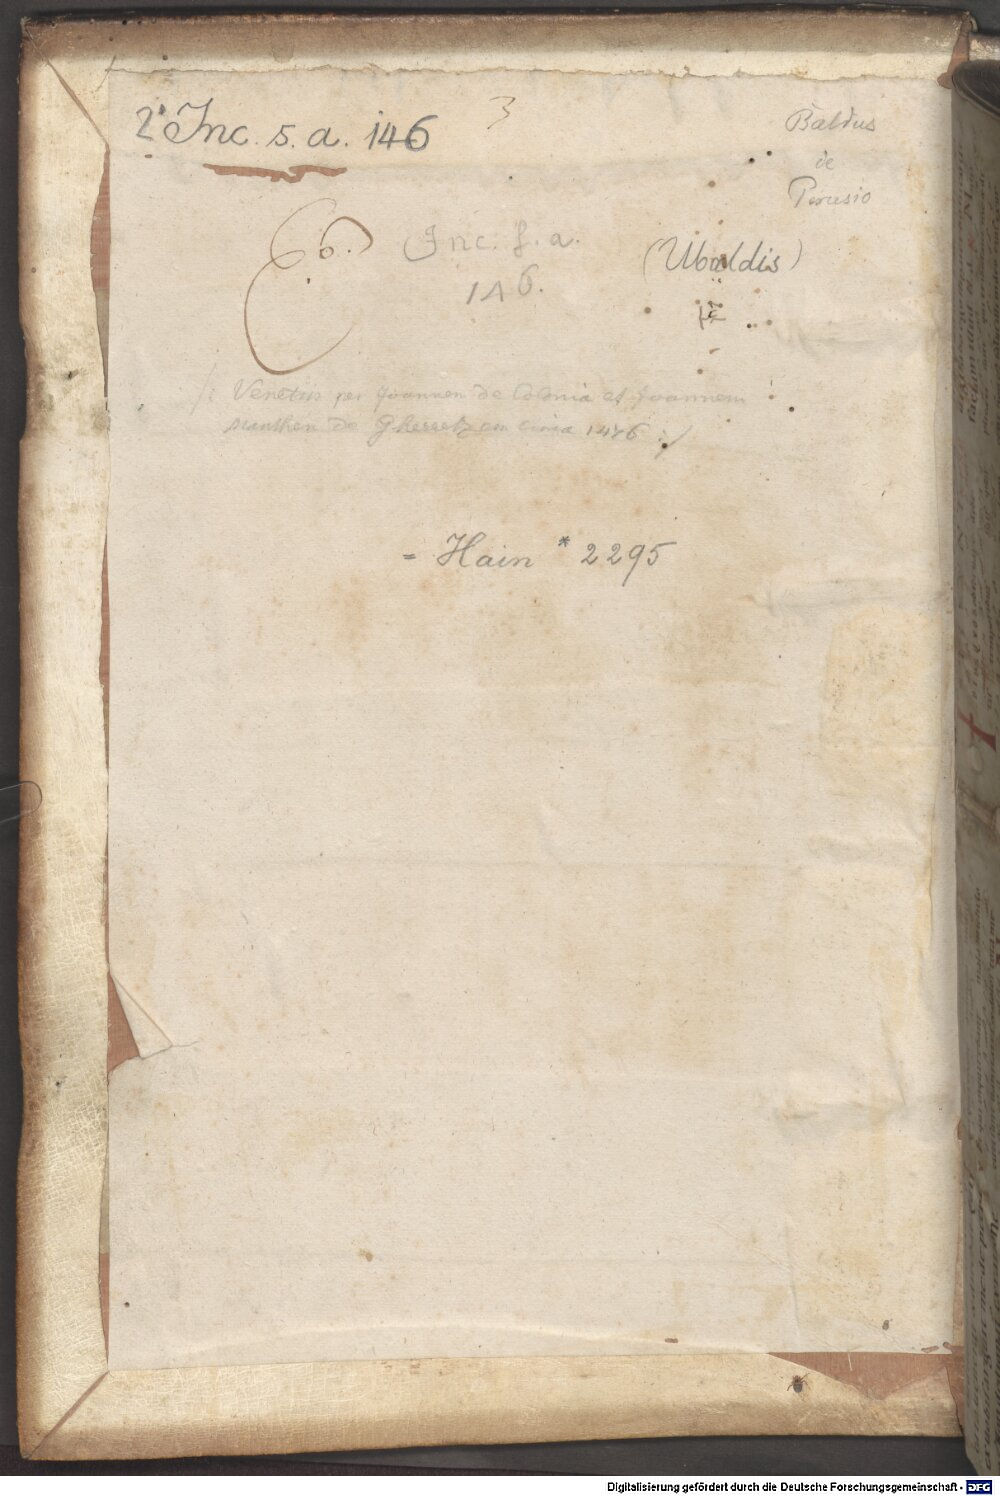 2° Inc. s. a. 146
3
Baldus
de
Perusio
66.
Inc. s. a.
146.
(Ubaldis)
/: Venetiis per Joannem de Colonia et Joannem
manthen de Gherretzem circa 1476 :/
= Hain * 2295
Digitalisierung gefördert durch die Deutsche Forschungsgemeinschaft - DFG